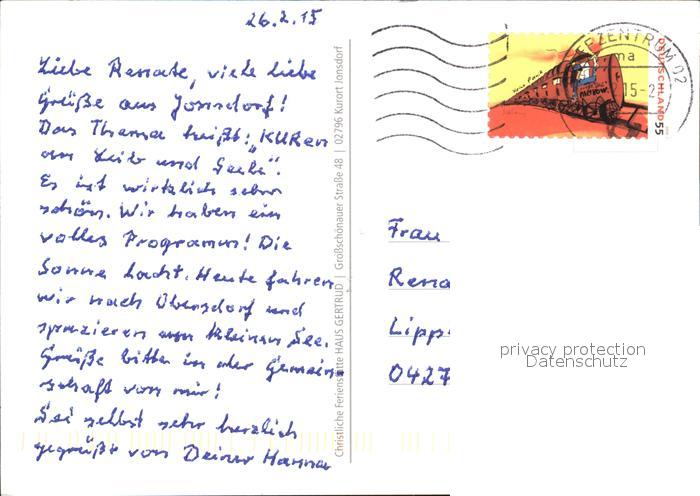 26.2.15
Liebe Renate, viele liebe
Grüße aus Jonsdorf!
Das Thema heißt: "KURen
an Leib und Seele".
Es ist wirklich sehr
schön. Wir haben ein
volles Programm! Die
Sonne lacht. Heute fahren
wir nach Obersdorf und
spazieren am kleinen See.
Grüße bitte in der Gemein
schaft von mir!
Sei selbst sehr herzlich
gegrüßt von Deiner Hanna
Christliche Ferienstätte HAUS GERTRUD | Großschönauer Straße 48 | 02796 Kurort Jonsdorf
ZENTRUM 02
15-2
DEUTSCHLAND 55
Frau
Rena
Lipps
0427
privacy protection
Datenschutz